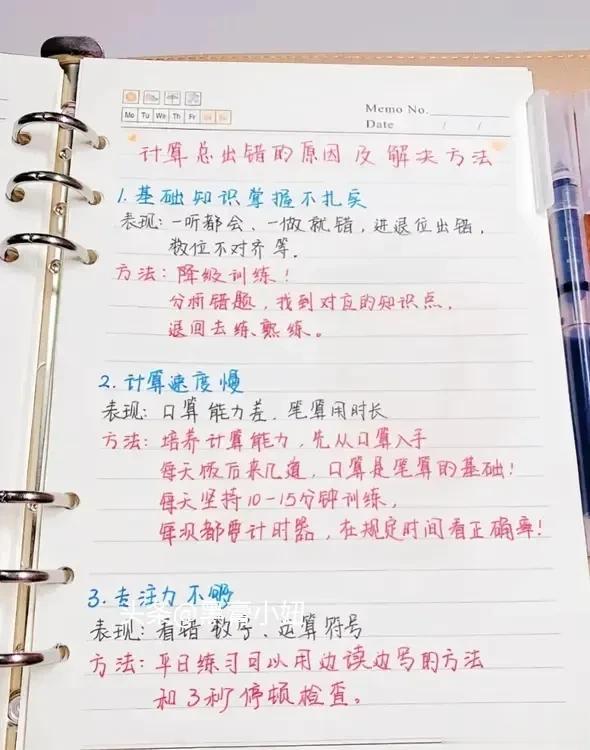 Memo No.
Mo Tu We Th Fr Sa Su
Date / /
计算总出错的原因及解决方法
1. 基础知识掌握不扎实
表现: 一听都会、一做就错, 进退位出错,
数位不对齐等。
方法: 降级训练!
分析错题, 找到对应的知识点,
退回去练熟练。
2. 计算速度慢
表现: 口算能力差, 笔算用时长
方法: 培养计算能力, 先从口算入手
每天饭后来几道, 口算是笔算的基础!
每天坚持10-15分钟训练,
每次都要计时器, 在规定时间看正确率!
3. 专注力不够
头条@黑膏小妞
表现: 看错数字、运算符号
方法: 平日练习可以用边读边写的方法
和3秒停顿检查。